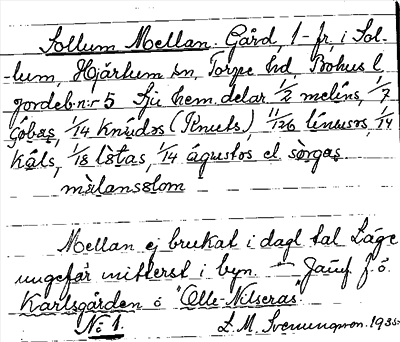 Sollum Mellan. Gård, 1- fr, i Sol-
-lum, Hjärtum sn, Torpe hd, Bohus l,
jordeb.nr 5 Sju hem.delar 1/2 melins, 1/7
Göbas, 1/14 Knudos (Knuts), 11/126 linusos, 1/14
Kåls, 1/18 lötas, 1/14 ágústos el sòrgas.
mèlansolom
Mellan ej brukat i dagl tal Läge
ungefär mitterst i byn. — Jämf f.ö.
Karlsgården o "Olle-Nilseras"
No 1. L. M. Svenungsson. 1935